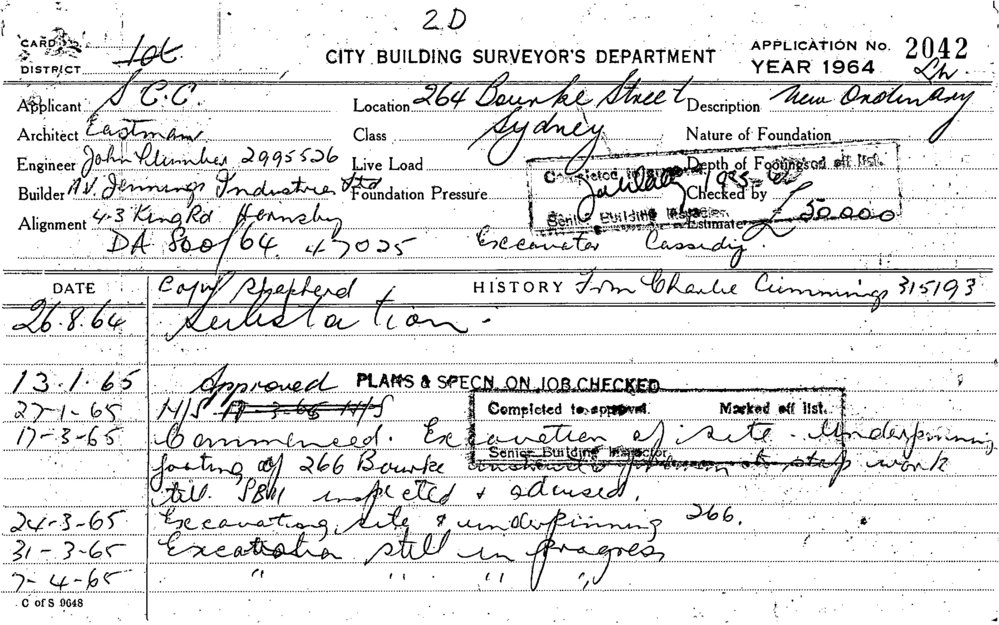 2D
CARD
DISTRICT Lot
CITY BUILDING SURVEYOR'S DEPARTMENT
APPLICATION No. 2042
YEAR 1964
Applicant S C.C.
Location 264 Bourke Street
Description New Ordinary
Architect Eastman
Class Sydney
Nature of Foundation
Engineer John Plimber 2995526
Live Load
Depth of Footings
Builder A.V. Jennings Industries Ltd
Foundation Pressure
Checked by
Alignment 43 King Rd Hornsby
Estimate £50000
Completed
off list.
Senior Building Inspector
DA 800/64 47025 Excavator Cassidy.
DATE
Copy Shepherd HISTORY Frm Charlie Cummings 315193
26.8.64 Substation -
13.1.65 Approved PLANS & SPECN. ON JOB CHECKED
27-1-65 N/S 17-3-65 N/S
Completed to approval. Marked off list.
Senior Building Inspector
17-3-65 Commenced. Excavation of site - Underpinning
footing of 266 Bourke stop work
till SBI inspected & advised.
24-3-65 Excavating site & underpinning 266.
31-3-65 Excavation still in progress
7-4-65 " " " "
C of S 9648